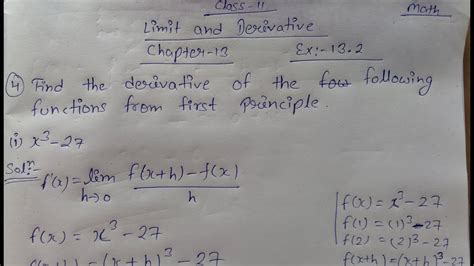 Class-11
Math
Limit and Derivative
Chapter-13 Ex:-13.2
④ Find the derivative of the following
functions from first Principle.
(i) x³-27
Solⁿ:-
f'(x)= lim h→0 f(x+h)-f(x) / h
f(x) = x³-27
f(x+h) = (x+h)³-27
f(x) = x³-27
f(1) = (1)³-27
f(2) = (2)³-27
f(x+h) = (x+h)³-27